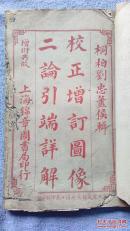 桐柏劉忠蓋侯輯
校正增訂圖像
二論引端詳解
上海錦章圖書局印行